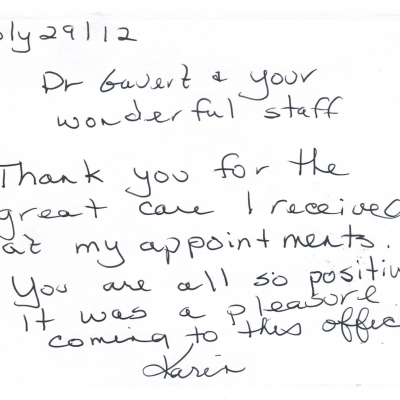 oly 29/12
Dr Gavert & your
wonderful staff
Thank you for the
great care I received
at my appointments.
You are all so positiv
It was a pleasure
coming to this offic
Karen